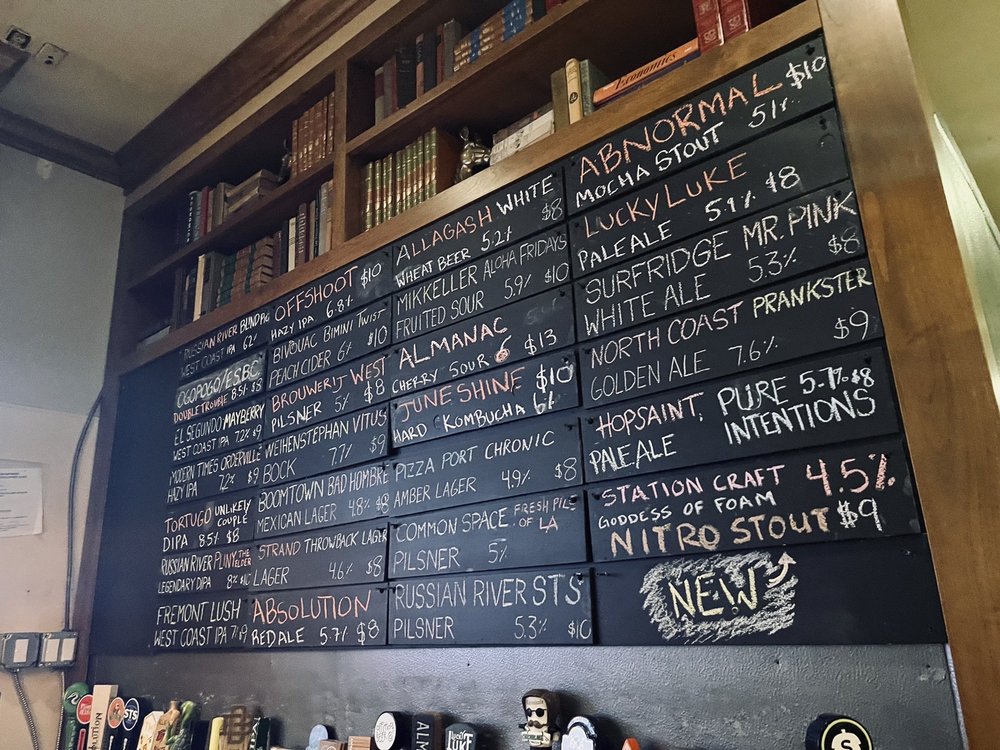 RUSSIAN RIVER BLIND PIG
WEST COAST IPA 6.1%
OGOPOGO/ESBC
DOUBLE TROUBLE 8.5% $8
EL SEGUNDO MAYBERRY
WEST COAST IPA 7.2% $9
MODERN TIMES ORDERVILLE
HAZY IPA 7.2% $9
TORTUGO UNLIKELY COUPLE
DIPA 8.5% $8
RUSSIAN RIVER PLINY THE ELDER
LEGENDARY DIPA 8%
FREMONT LUSH
WEST COAST IPA 7% $9
OFFSHOOT $10
HAZY IPA 6.8%
BIVOUAC BIMINI TWIST
PEACH CIDER 6% $10
BROUWERIJ WEST
PILSNER 5% $8
WEIHENSTEPHAN VITUS
BOCK 7.7% $9
BOOMTOWN BAD HOMBRE
MEXICAN LAGER 4.8% $8
STRAND THROWBACK LAGER
LAGER 4.6% $8
ABSOLUTION
RED ALE 5.7% $8
ALLAGASH WHITE
WHEAT BEER 5.2% $8
MIKKELLER ALOHA FRIDAYS
FRUITED SOUR 5.9% $10
ALMANAC
CHERRY SOUR $13
JUNE SHINE $10
HARD KOMBUCHA 6%
PIZZA PORT CHRONIC
AMBER LAGER 4.9% $8
COMMON SPACE FRESH PILS OF LA
PILSNER 5%
RUSSIAN RIVER STS
PILSNER 5.3% $10
ABNORMAL $10
MOCHA STOUT 5.1%
LUCKY LUKE
PALE ALE 5.9% $8
SURFRIDGE MR. PINK
WHITE ALE 5.3% $8
NORTH COAST PRANKSTER
GOLDEN ALE 7.6% $9
HOPSAINT, PURE 5.7% $8
PALE ALE INTENTIONS
STATION CRAFT 4.5%
GODDESS OF FOAM
NITRO STOUT $9
NEW
Economics
STS
LUKE